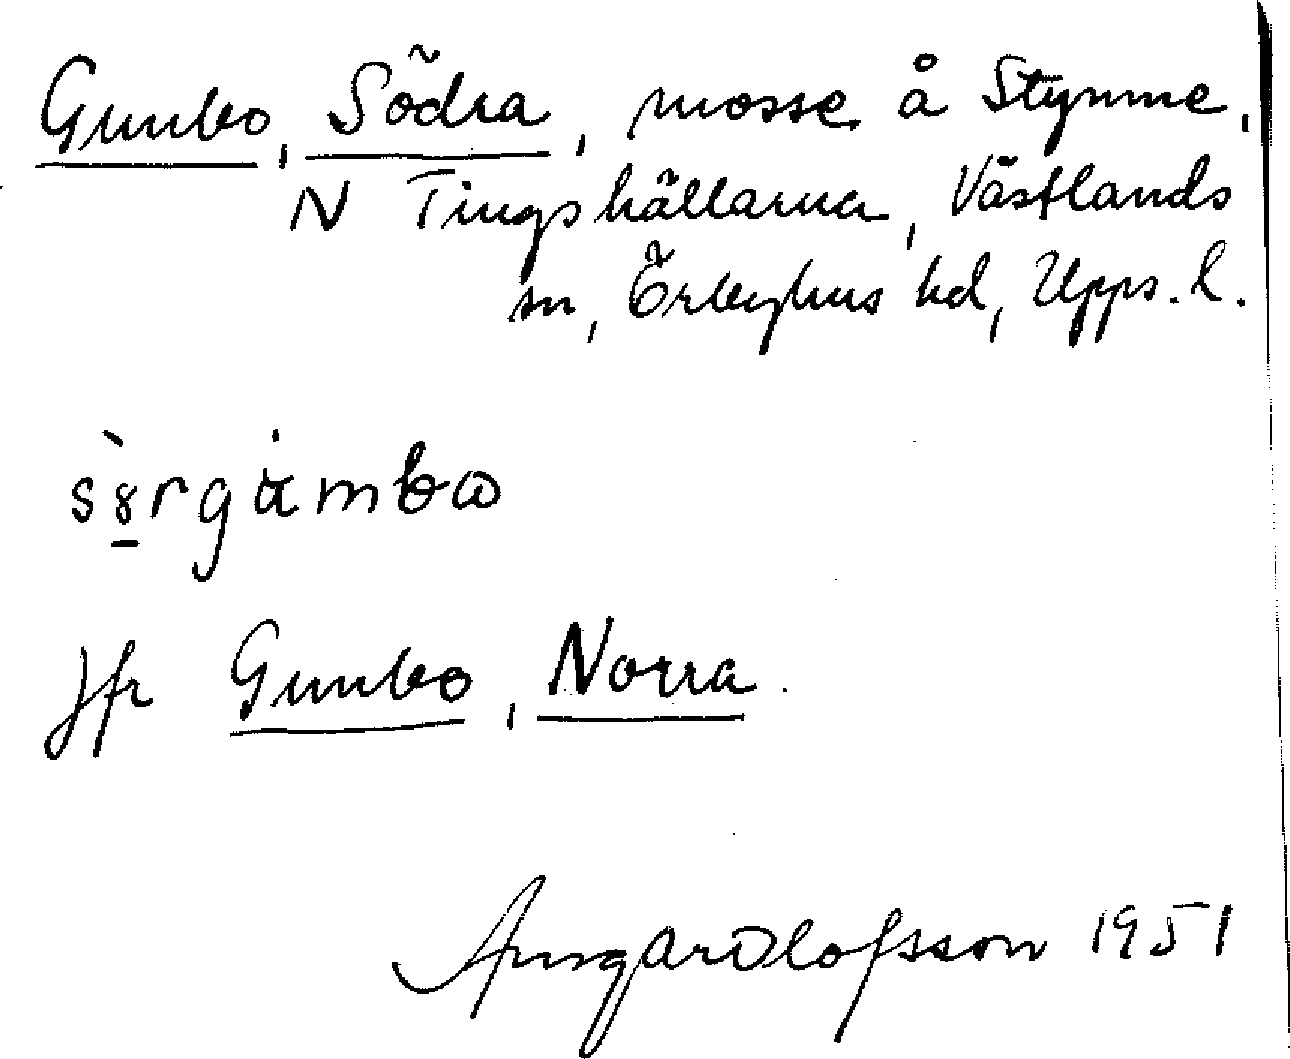 Gumbo, Södra, mosse å Stymme,
N Tingshällarna, Västlands
sn, Örbyhus hd, Upps. l.
Jfr Gumbo, Norra.
Olofsson 1951